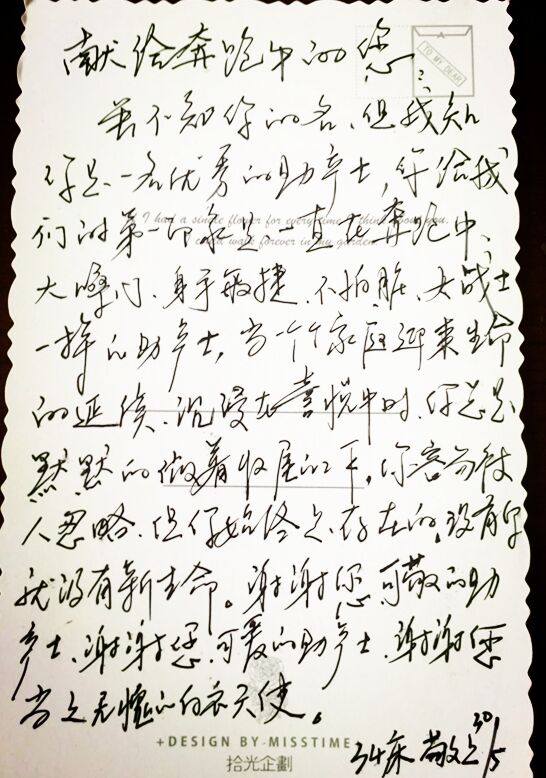 献给奔跑中的您
TO MY DEAR
虽不知你的名、但我知
你是一名优秀的助产士，你给我
I had a single flower for every time I think about you,
们的第一印象是一直在奔跑中、
could walk forever in my garden.
大嗓门、身手敏捷、不怕脏、女战士
一样的助产士，当一个个家庭迎来生命
的延续、沉浸在喜悦中时、你总是
默默的做着收尾的工作，你容易被
人忽略、但你始终是存在的。没有你
就没有新生命。谢谢您可敬的助
产士、谢谢您、可爱的助产士、谢谢您
当之无愧的白衣天使。
+DESIGN BY·MISSTIME
拾光企劃
34床 敬上 30/5